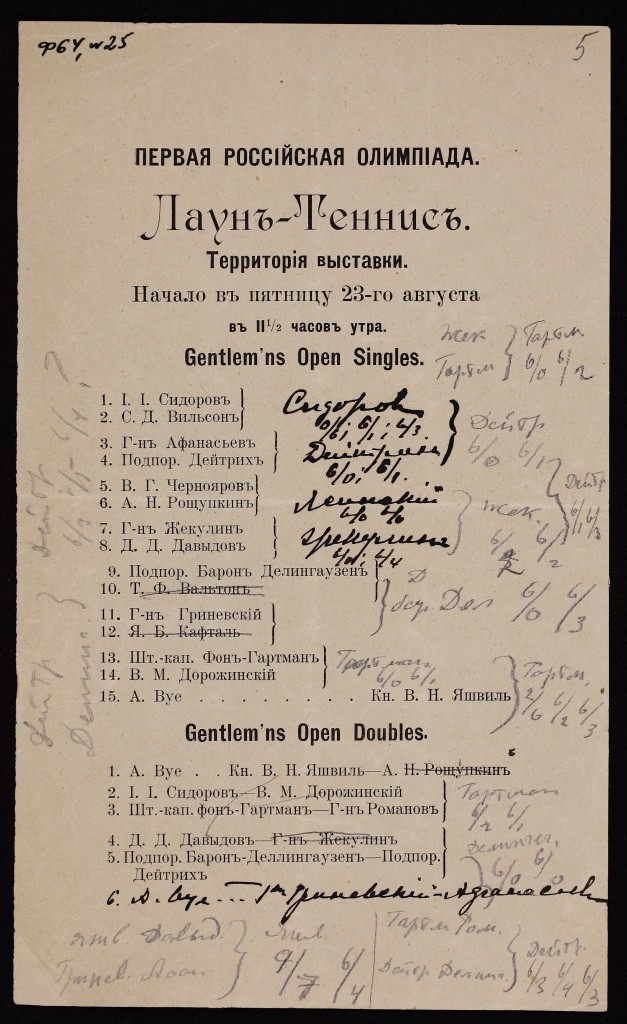 ф64, №25
5
ПЕРВАЯ РОССІЙСКАЯ ОЛИМПІАДА.
Лаунъ-Теннисъ.
Территорія выставки.
Начало въ пятницу 23-го августа
въ II½ часовъ утра.
Жек
Гартм
Гартм.
6/0 6/2
Gentlem'ns Open Singles.
1. І. І. Сидоровъ
2. С. Д. Вильсонъ
Сидоров
3. Г-нъ Афанасьевъ
4. Подпор. Дейтрихъ
6/0, 6/1.
Дейтр
6/0 6/1
5. В. Г. Чернояровъ
6. А. Н. Рощупкинъ
Дейтр.
6/1 6/3
7. Г-нъ Жекулинъ
8. Д. Д. Давыдовъ
Жекулинъ
6/0, 6/4
Жек.
9. Подпор. Баронъ Делингаузенъ
10. Т. Ф. Вальтонъ
бар. Дел 6/0 6/3
11. Г-нъ Гриневскій
12. Я. Б. Кафталь
13. Шт.-кап. Фонъ-Гартманъ
14. В. М. Дорожинскій
Гартман
6/0 6/1
Гартм.
2/6 6/2 6/3
15. А. Вуе . . . . . . . . Кн. В. Н. Яшвиль
Gentlem'ns Open Doubles.
1. А. Вуе . . Кн. В. Н. Яшвиль—А. Н. Рощупкинъ
2. І. І. Сидоровъ—В. М. Дорожинскій
3. Шт.-кап. фонъ-Гартманъ—Г-нъ Романовъ
Гартман
6/2 6/1
4. Д. Д. Давыдовъ—Г-нъ Жекулинъ
5. Подпор. Баронъ-Деллингаузенъ—Подпор.
Дейтрихъ
6/0 6/0
6. А. Вуе ... Г-нъ Гриневскій-Афанасьев
Яшв. Давыд.
Гринев. Афан.
Яшв.
9/7 6/4
Гартм Ром.
Дейтр Делинг.
Дейтр.
6/3 6/4 6/3